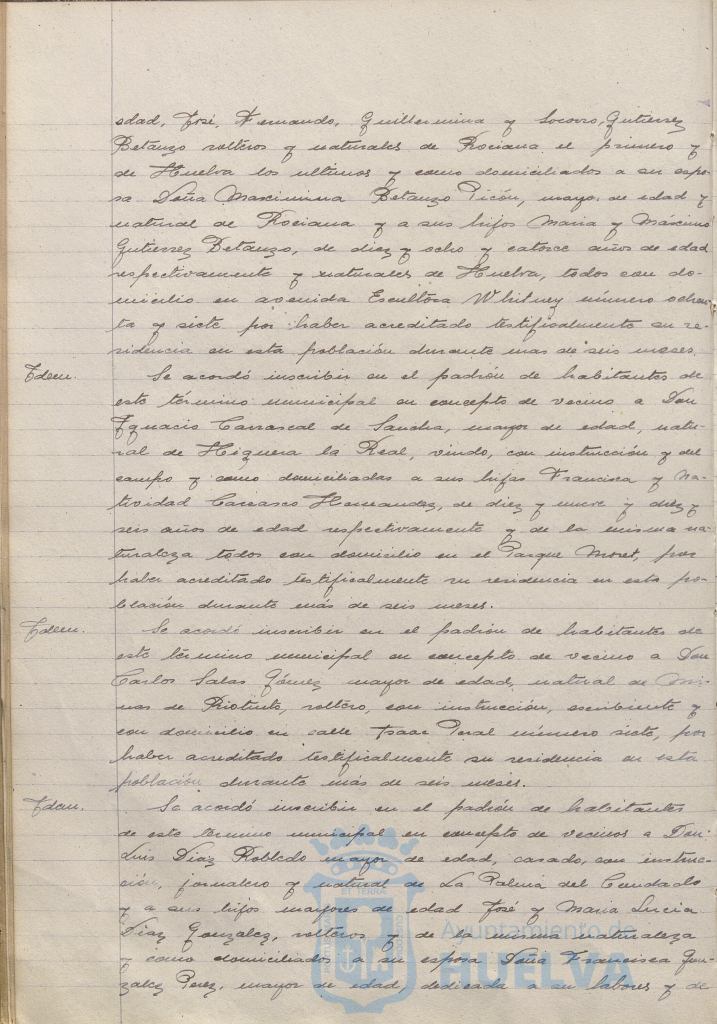 edad, José, Fernando, Guillermina y Socorro, Gutierrez
Betanzo solteros y naturales de Rociana el primero y
de Huelva los ultimos y como domiciliados a su espo-
sa Doña Maximina Betanzo Picón, mayor de edad y
natural de Rociana y a sus hijos Maria y Máximo
Gutierrez Betanzo, de diez y ocho y catorce años de edad
respectivamente y naturales de Huelva, todos con do-
micilio en avenida Escultora Whitney número ochen-
ta y siete por haber acreditado testificalmente su re-
sidencia en esta población durante mas de seis meses.
Idem. Se acordó inscribir en el padrón de habitantes de
este término municipal en concepto de vecino a Don
Ignacio Carrascal de Sancha, mayor de edad, natu-
ral de Higuera la Real, viudo, con instrucción y del
campo y como domiciliadas a sus hijas Francisca y Na-
tividad Carrasco Hernandez, de diez y nueve y diez y
seis años de edad respectivamente y de la misma na-
turaleza todos con domicilio en el Parque Moret, por
haber acreditado testificalmente su residencia en esta po-
blación durante más de seis meses.
Idem. Se acordó inscribir en el padrón de habitantes de
este término municipal en concepto de vecino a Don
Carlos Salas Gómez mayor de edad, natural de Mi-
nas de Riotinto, soltero, con instrucción, escribiente y
con domicilio en calle Isaac Peral número siete, por
haber acreditado testificalmente su residencia en esta
población durante más de seis meses.
Idem. Se acordó inscribir en el padrón de habitantes
de este término municipal en concepto de vecinos a Don
Luis Diaz Robledo mayor de edad, casado, con instruc-
ción, jornalero y natural de La Palma del Condado
y a sus hijos mayores de edad José y Maria Lucia
Diaz Gonzalez, solteros y de la misma naturaleza
y como domiciliados a su esposa Doña Francisca Gon-
zalez Perez, mayor de edad, dedicada a su labores y de
Ayuntamiento de
HUELVA